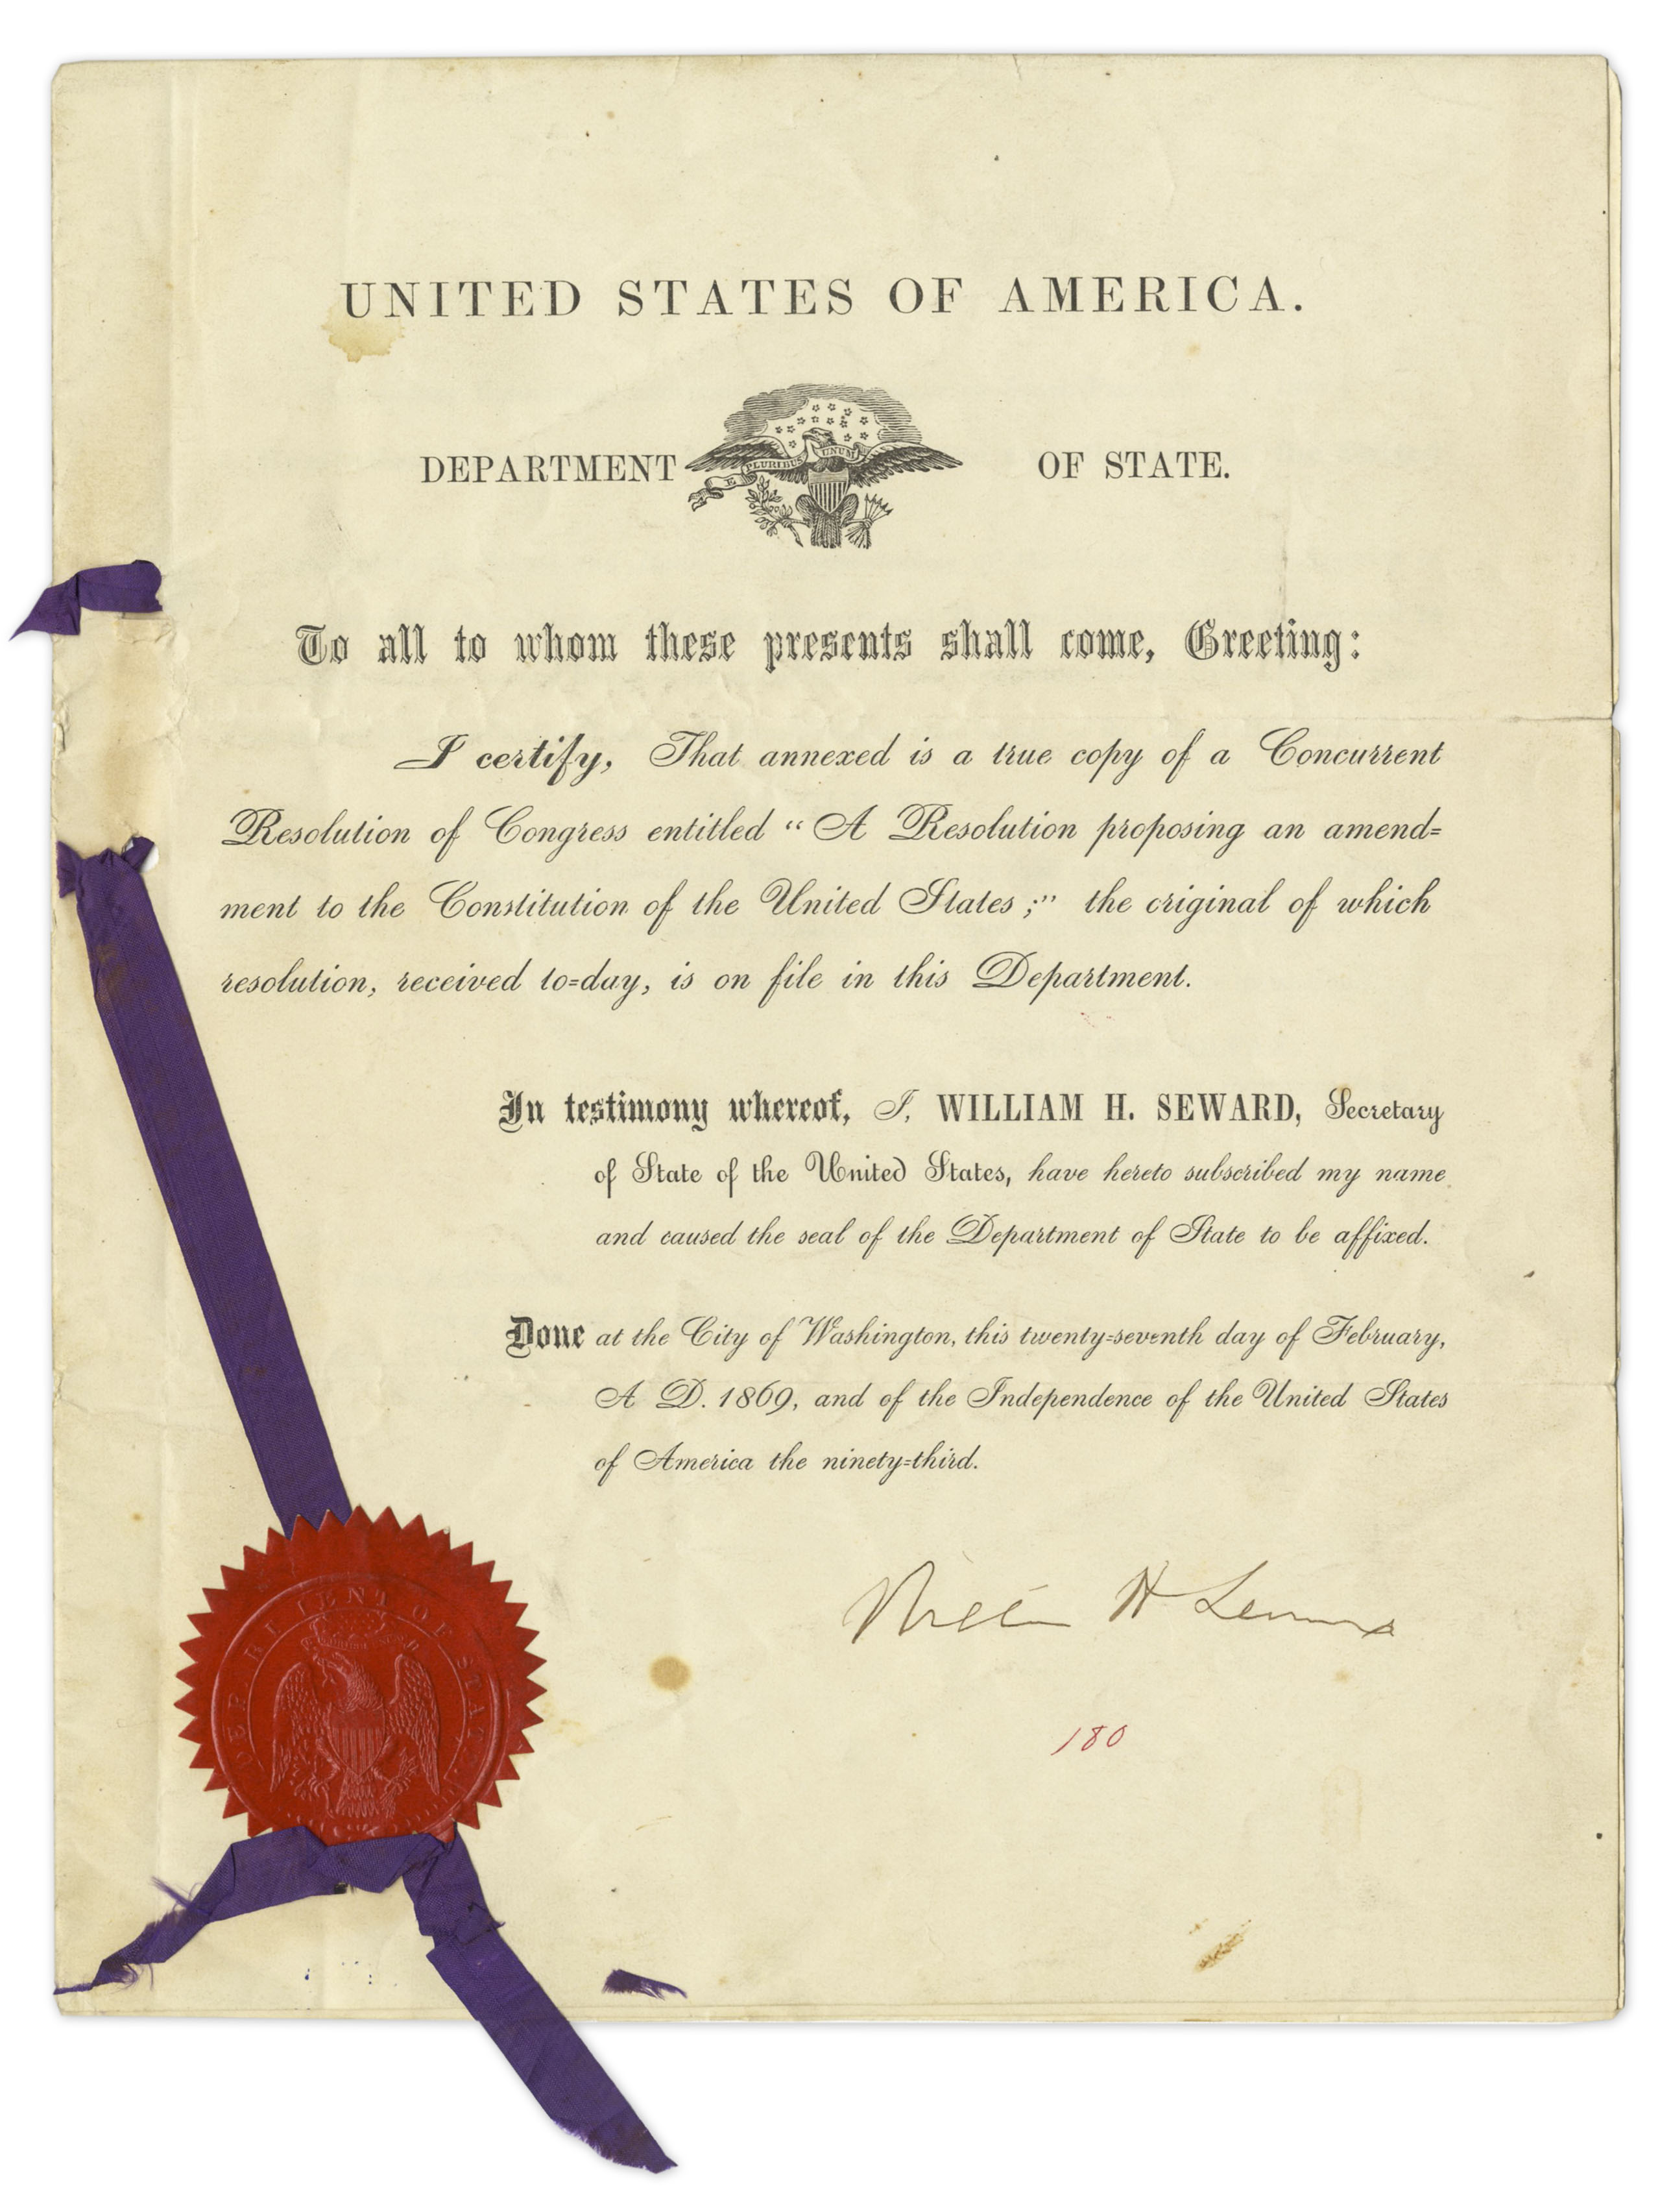 UNITED STATES OF AMERICA.
DEPARTMENT OF STATE.
E PLURIBUS UNUM
To all to whom these presents shall come, Greeting:
I certify, That annexed is a true copy of a Concurrent
Resolution of Congress entitled “A Resolution proposing an amend=
ment to the Constitution of the United States;” the original of which
resolution, received to=day, is on file in this Department.
In testimony whereof, I, WILLIAM H. SEWARD, Secretary
of State of the United States, have hereto subscribed my name
and caused the seal of the Department of State to be affixed.
Done at the City of Washington, this twenty=seventh day of February,
A D. 1869, and of the Independence of the United States
of America the ninety=third.
William H Seward
180
DEPARTMENT OF STATE